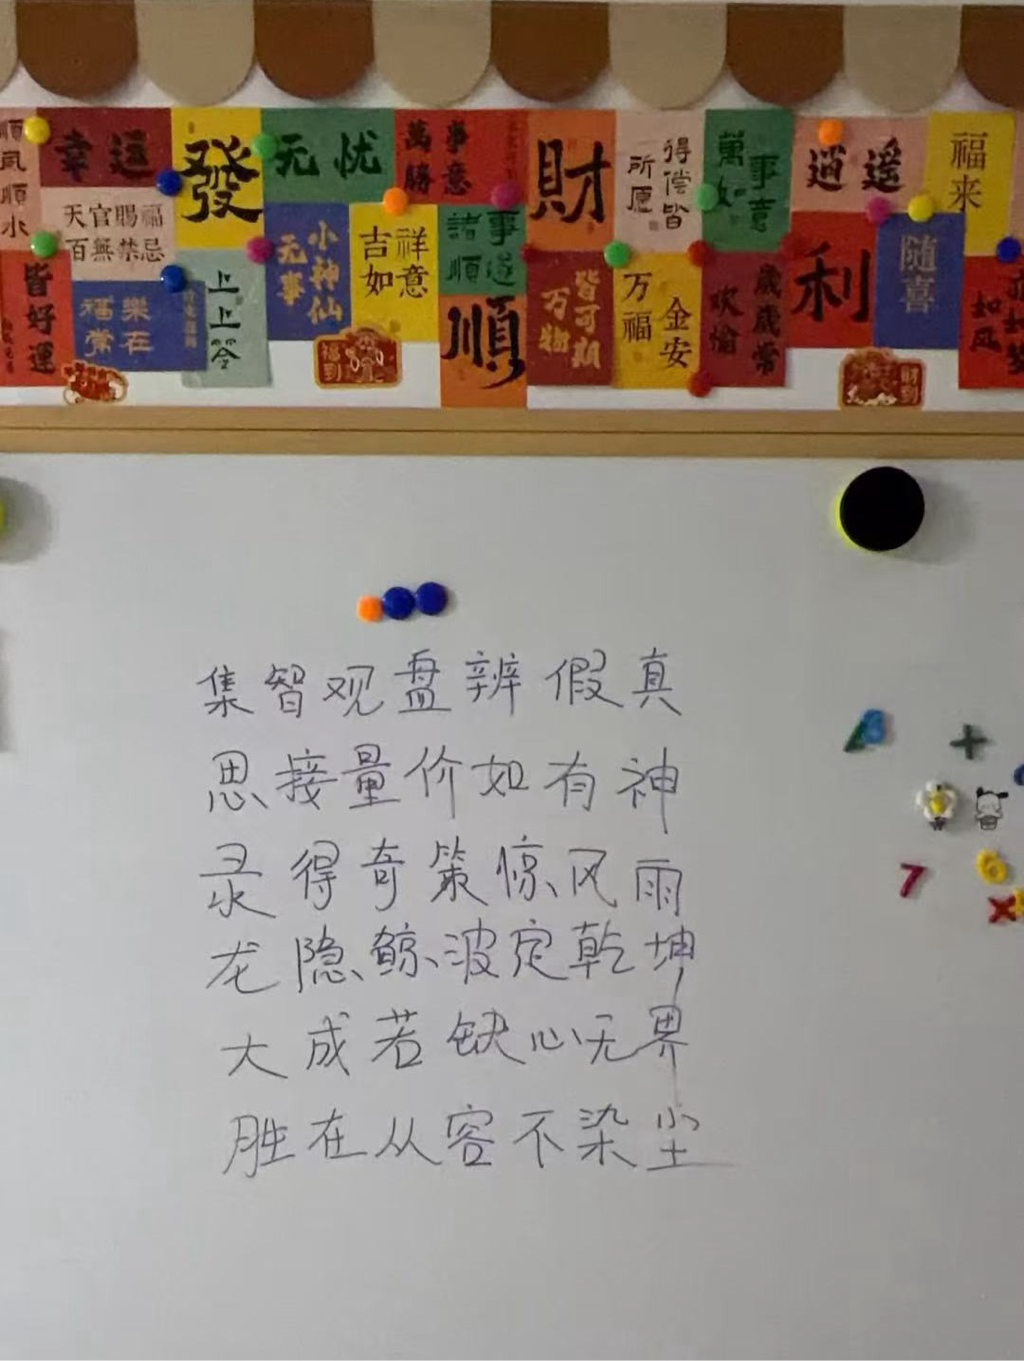 順風順水
幸運
發
无忧
萬事勝意
財
得偿皆所愿
萬事如意
逍遥
福来
天官賜福
百無禁忌
小神仙
无事
吉祥如意
諸事順遂
皆好運
樂在福常
上上签
順
皆可期万物
万福金安
歲歲常欢愉
利
随喜
福到
集智观盘辨假真
思接量价如有神
录得奇策惊风雨
龙隐鲸波定乾坤
大成若缺心无界
胜在从容不染尘
7
+
6
×